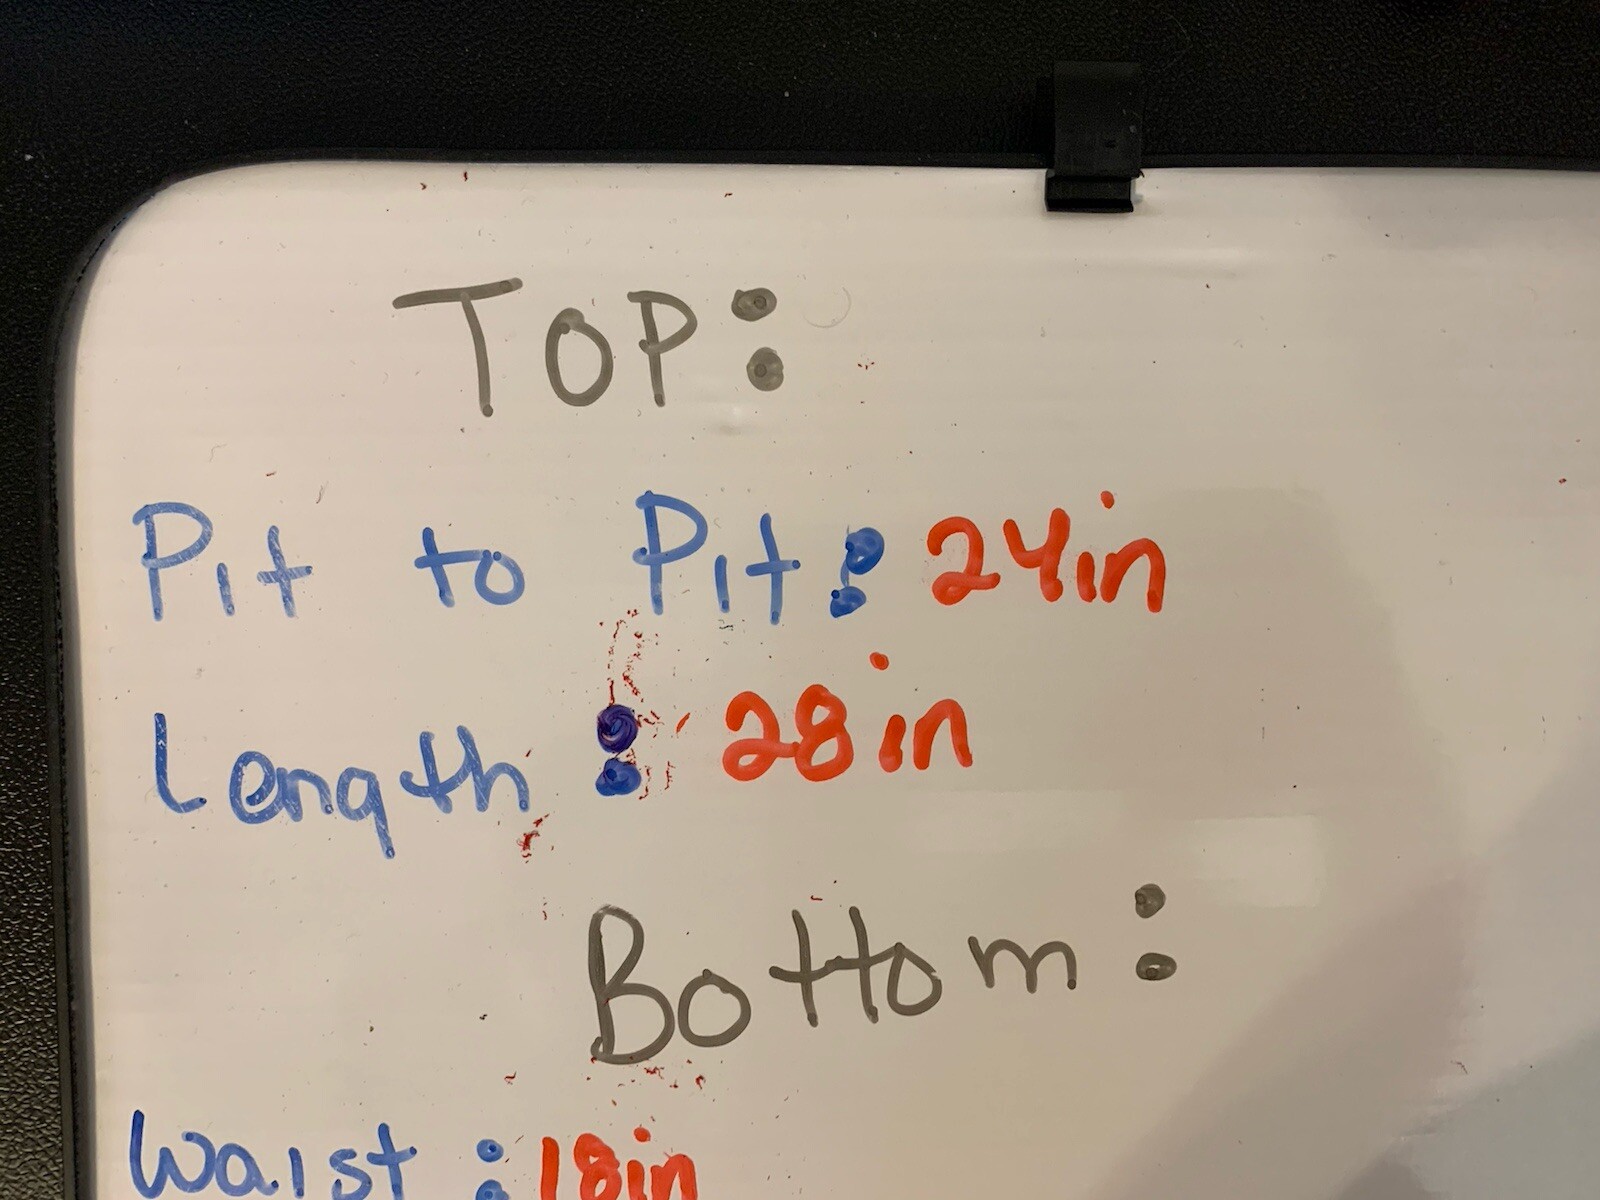 TOP:
Pit to Pit: 24in
Length: 28in
Bottom:
Waist: 18in